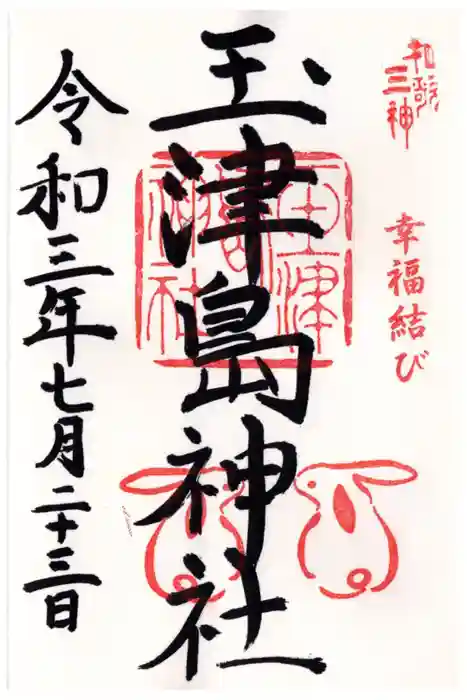 和歌三神
幸福結び
玉津島神社
玉津島神社
令和三年七月二十三日